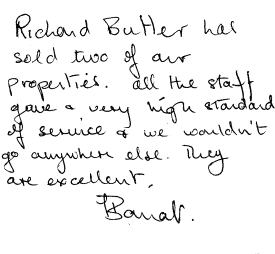 Richard Butler has
sold two of our
properties. all the staff
gave a very high standard
of service & we wouldn't
go anywhere else. They
are excellent.